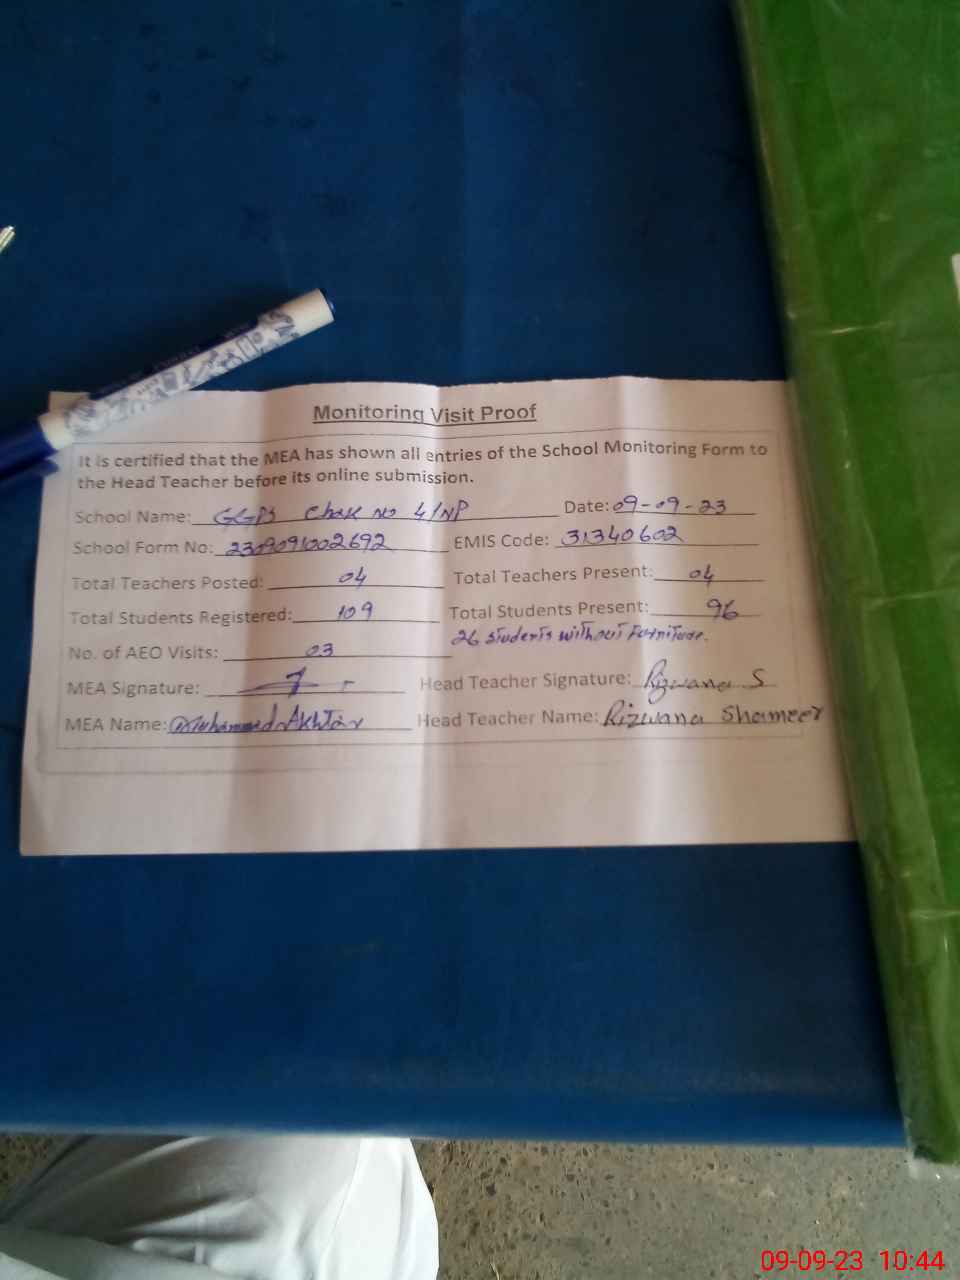 Monitoring Visit Proof
It is certified that the MEA has shown all entries of the School Monitoring Form to
the Head Teacher before its online submission.
School Name: GGPS Chak no 4/NP Date: 09-09-23
School Form No: 2309091002692 EMIS Code: 31340602
Total Teachers Posted: 04 Total Teachers Present: 04
Total Students Registered: 109 Total Students Present: 96
26 students without Furniture.
No. of AEO Visits: 03
MEA Signature: Head Teacher Signature: Rizwana S
MEA Name: Muhammad Akhtar Head Teacher Name: Rizwana Shameer
09-09-23 10:44